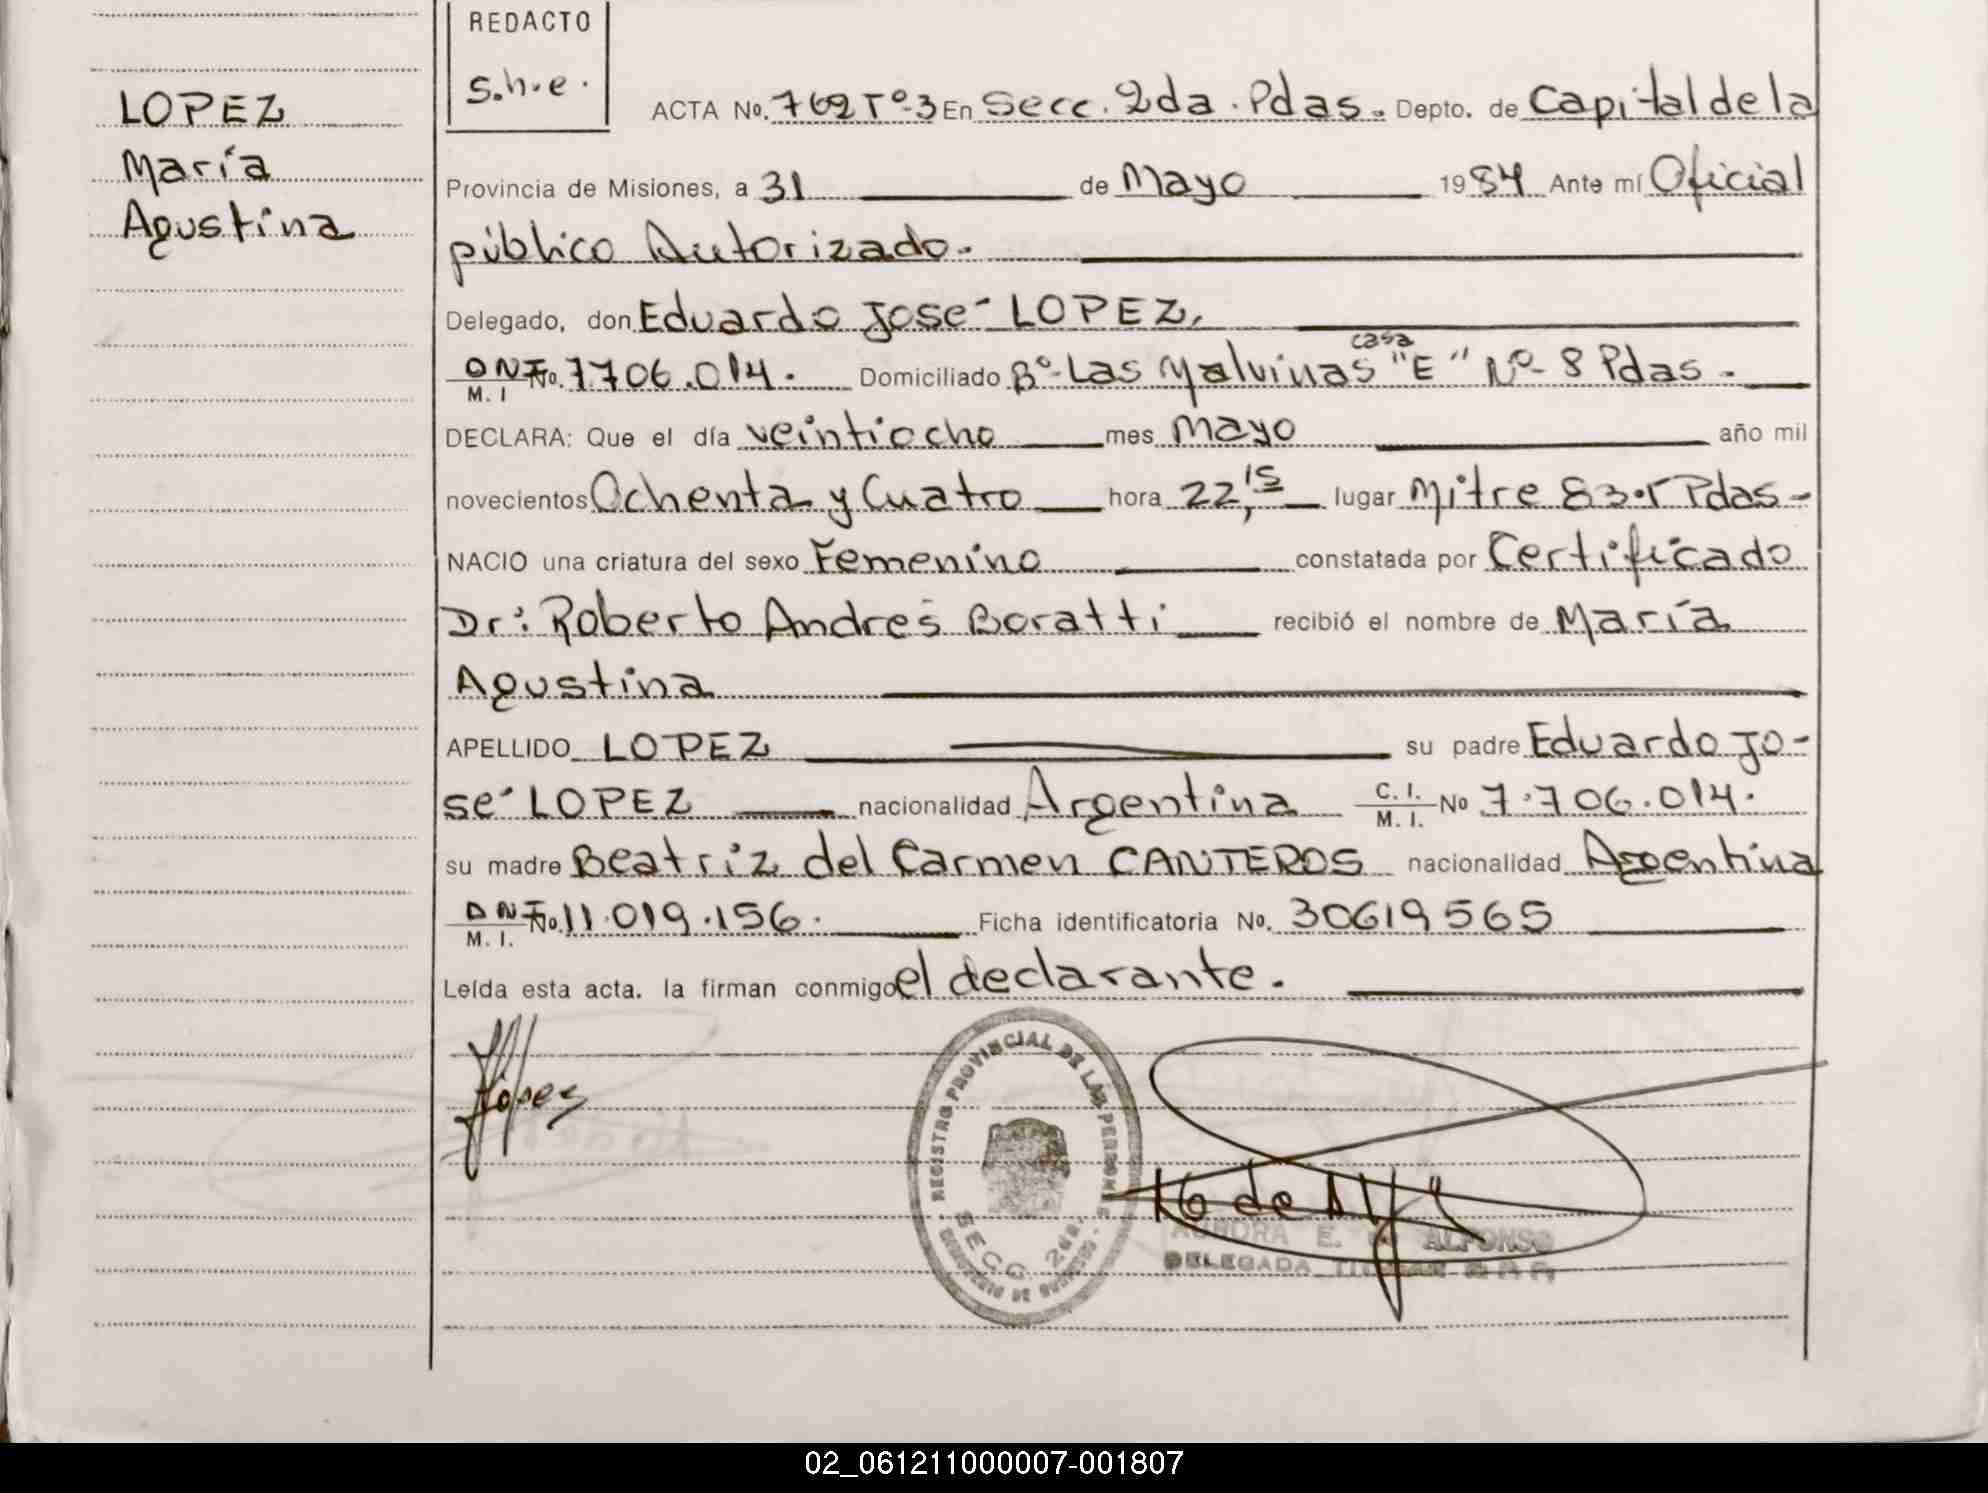 REDACTO
s.h.e.
LOPEZ
María
Agustina
ACTA No. 762 Tº 3 En Secc. 2da. Pdas. Depto. de Capital de la
Provincia de Misiones, a 31 de Mayo 1984 Ante mí Oficial
público Autorizado.
Delegado, don Eduardo José LOPEZ,
casa
DNI No. 7.706.014. Domiciliado Bº Las Malvinas "E" Nº 8 Pdas.
M. I
DECLARA: Que el día veintiocho mes Mayo año mil
novecientos Ochenta y Cuatro hora 22,15 lugar Mitre Pdas-
NACIO una criatura del sexo Femenino constatada por Certificado
Dr: Roberto Andrés Boratti recibió el nombre de María
Agustina
APELLIDO LOPEZ su padre Eduardo Jo-
sé LOPEZ nacionalidad Argentina C. I. No 7.706.014.
M. I.
su madre Beatriz del Carmen CANTEROS nacionalidad Argentina
DNI No. 11.019.156. Ficha identificatoria No. 30619565
M. I.
Leída esta acta. la firman conmigo el declarante.
López
REGISTRO PROVINCIAL DE LAS PERSONAS
SECC. 2da.
AURORA E. de ALFONSO
DELEGADA TITULAR
02_061211000007-001807